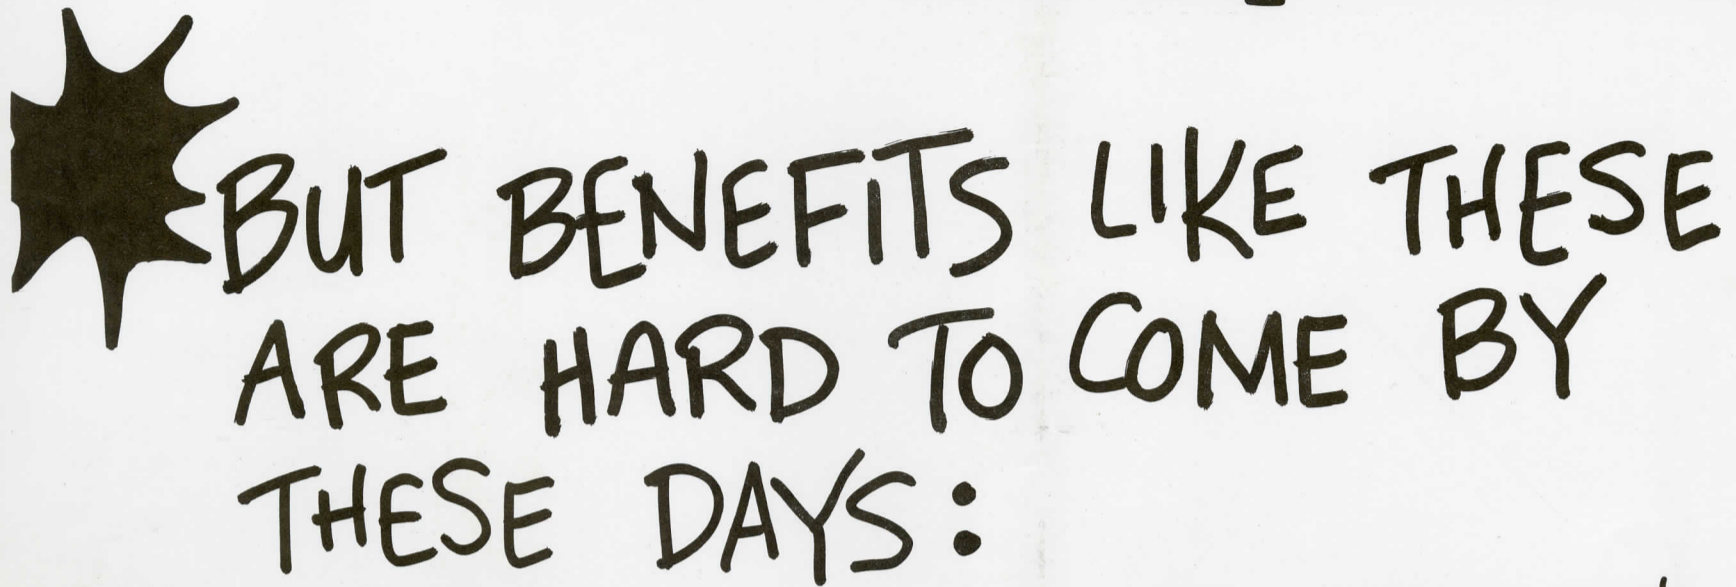 BUT BENEFITS LIKE THESE
ARE HARD TO COME BY
THESE DAYS: